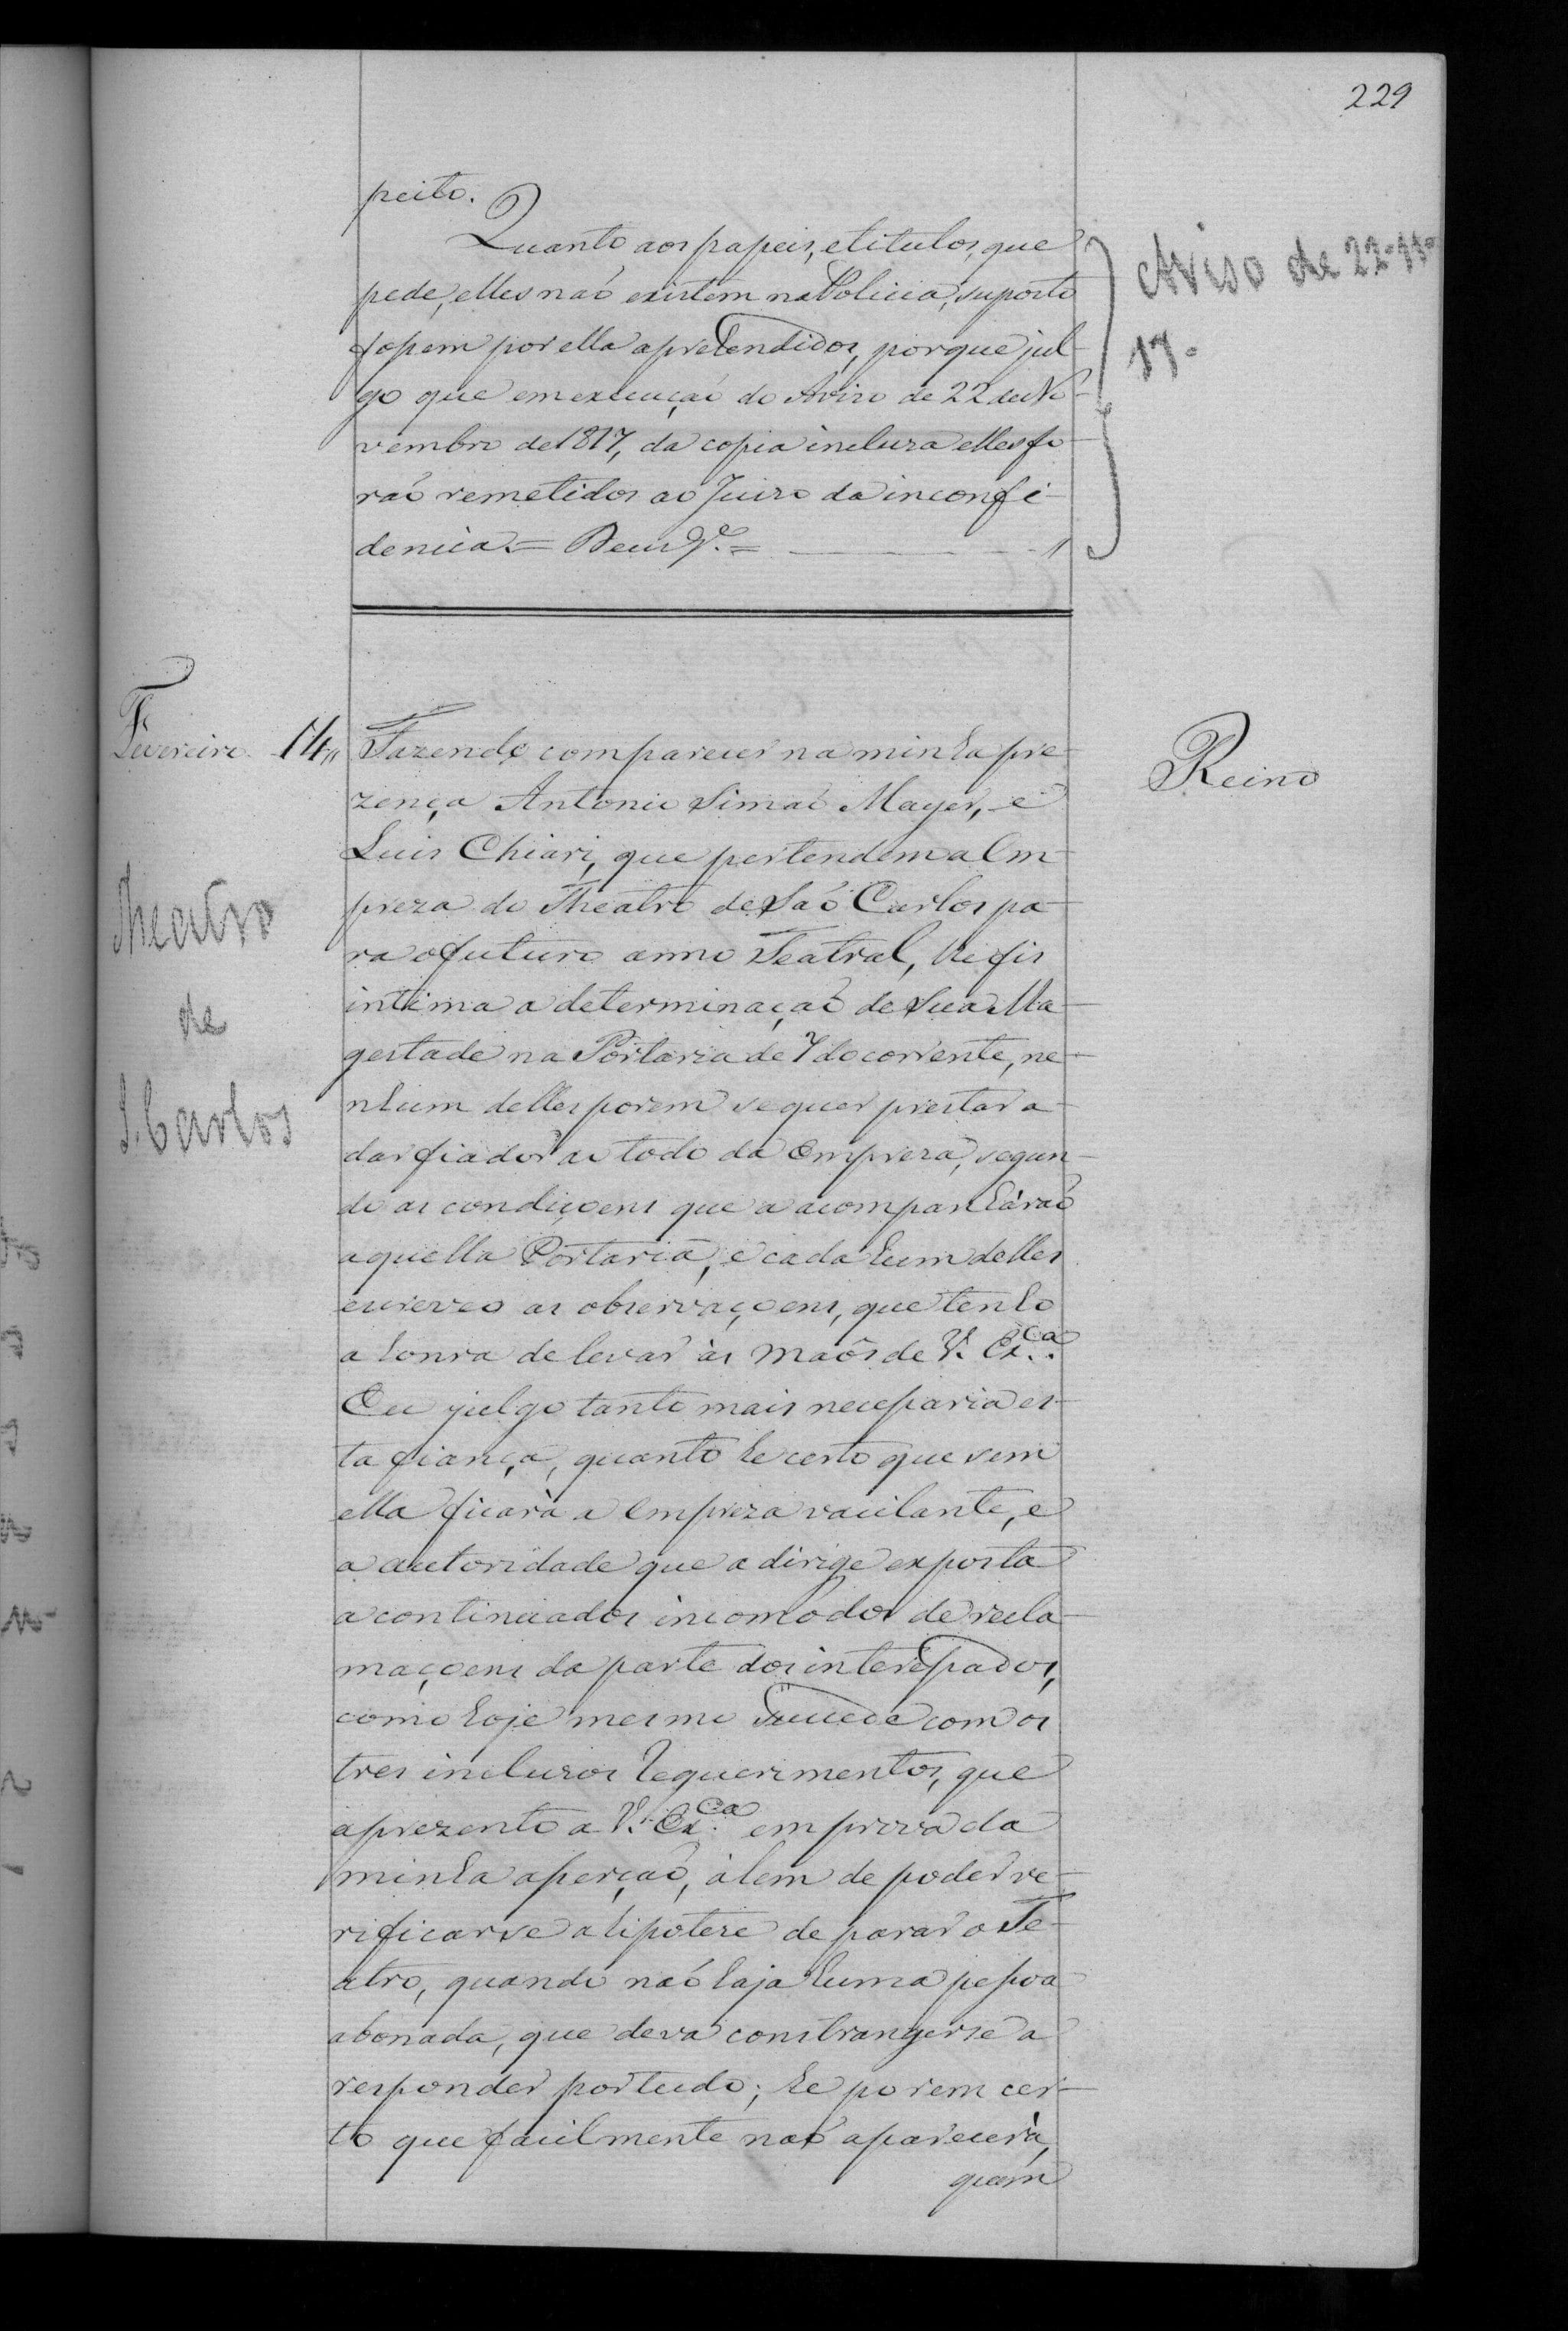 229
peito.
Quanto aos papeis, e titulos, que
pede, elles naó existem na Policia, suposto
fossem por ella apretendidos, porque jul-
go que em execuçaó do Aviso de 22 de No-
vembro de 1817, da copia incluza elles fo-
raó remetidos ao Juizo da inconfi-
dencia. = Deus g.e =
Aviso de 22-11-
17-
Fevereiro 14,,
Fazendo comparecer na minha pre-
zença Antonio Simaó Mayer, e
Luis Chiari, que pertendem a Em-
preza do Theatro de Saó Carlos pa-
ra o futuro anno Teatral, lhe fis
intima a determinaçaó de Sua Ma-
gestade na Portaria de 7 do corrente, ne-
nhum delles porem se quer prestar a
dar fiador ao todo da Empreza, segun-
do as condiçoens que a acompanháraó
aquella Portaria, e cada hum delles
escreveo as observaçoens, que tenho
a honra de levar ás maós de V. Ex.ca
Eu julgo tanto mais necessaria es-
ta fiança, quanto he certo que sem
ella ficará a Empreza vacilante, e
a autoridade que a dirige exposta
a continuados incomodos de recla-
maçoens da parte dos interessados,
como hoje mesmo sucede com os
tres incluzos Requerimentos, que
aprezento a V. Ex.ca em prova da
minha asserçaó, álem de poder ve-
rificarse a hipoteze de parar o Te-
atro, quando naó haja huma pessoa
abonada, que deva constrangerse a
responder por tudo; he porem cer-
to que facilmente naó aparecerá,
quem
Reino
Theatro
de
S. Carlos